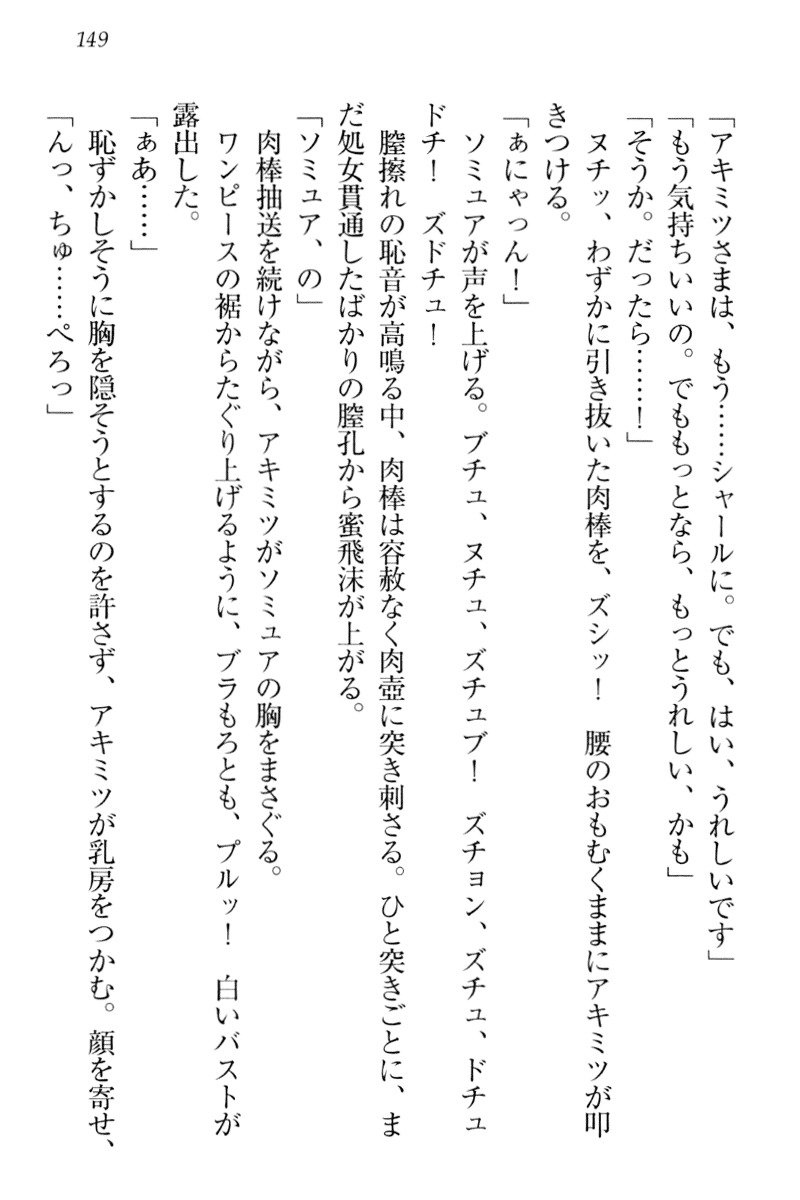 149
「アキミツさまは、もう……シャールに。でも、はい、うれしいです」
「もう気持ちいいの。でももっとなら、もっとうれしい、かも」
「そうか。だったら……！」
　ヌチッ、わずかに引き抜いた肉棒を、ズシッ！　腰のおもむくままにアキミツが叩
きつける。
「ぁにゃっん！」
　ソミュアが声を上げる。ブチュ、ヌチュ、ズチュブ！　ズチョン、ズチュ、ドチュ
ドチ！　ズドチュ！
　膣擦れの恥音が高鳴る中、肉棒は容赦なく肉壺に突き刺さる。ひと突きごとに、ま
だ処女貫通したばかりの膣孔から蜜飛沫が上がる。
「ソミュア、の」
　肉棒抽送を続けながら、アキミツがソミュアの胸をまさぐる。
　ワンピースの裾からたぐり上げるように、ブラもろとも、プルッ！　白いバストが
露出した。
「ぁあ……」
　恥ずかしそうに胸を隠そうとするのを許さず、アキミツが乳房をつかむ。顔を寄せ、
「んっ、ちゅ……ぺろっ」